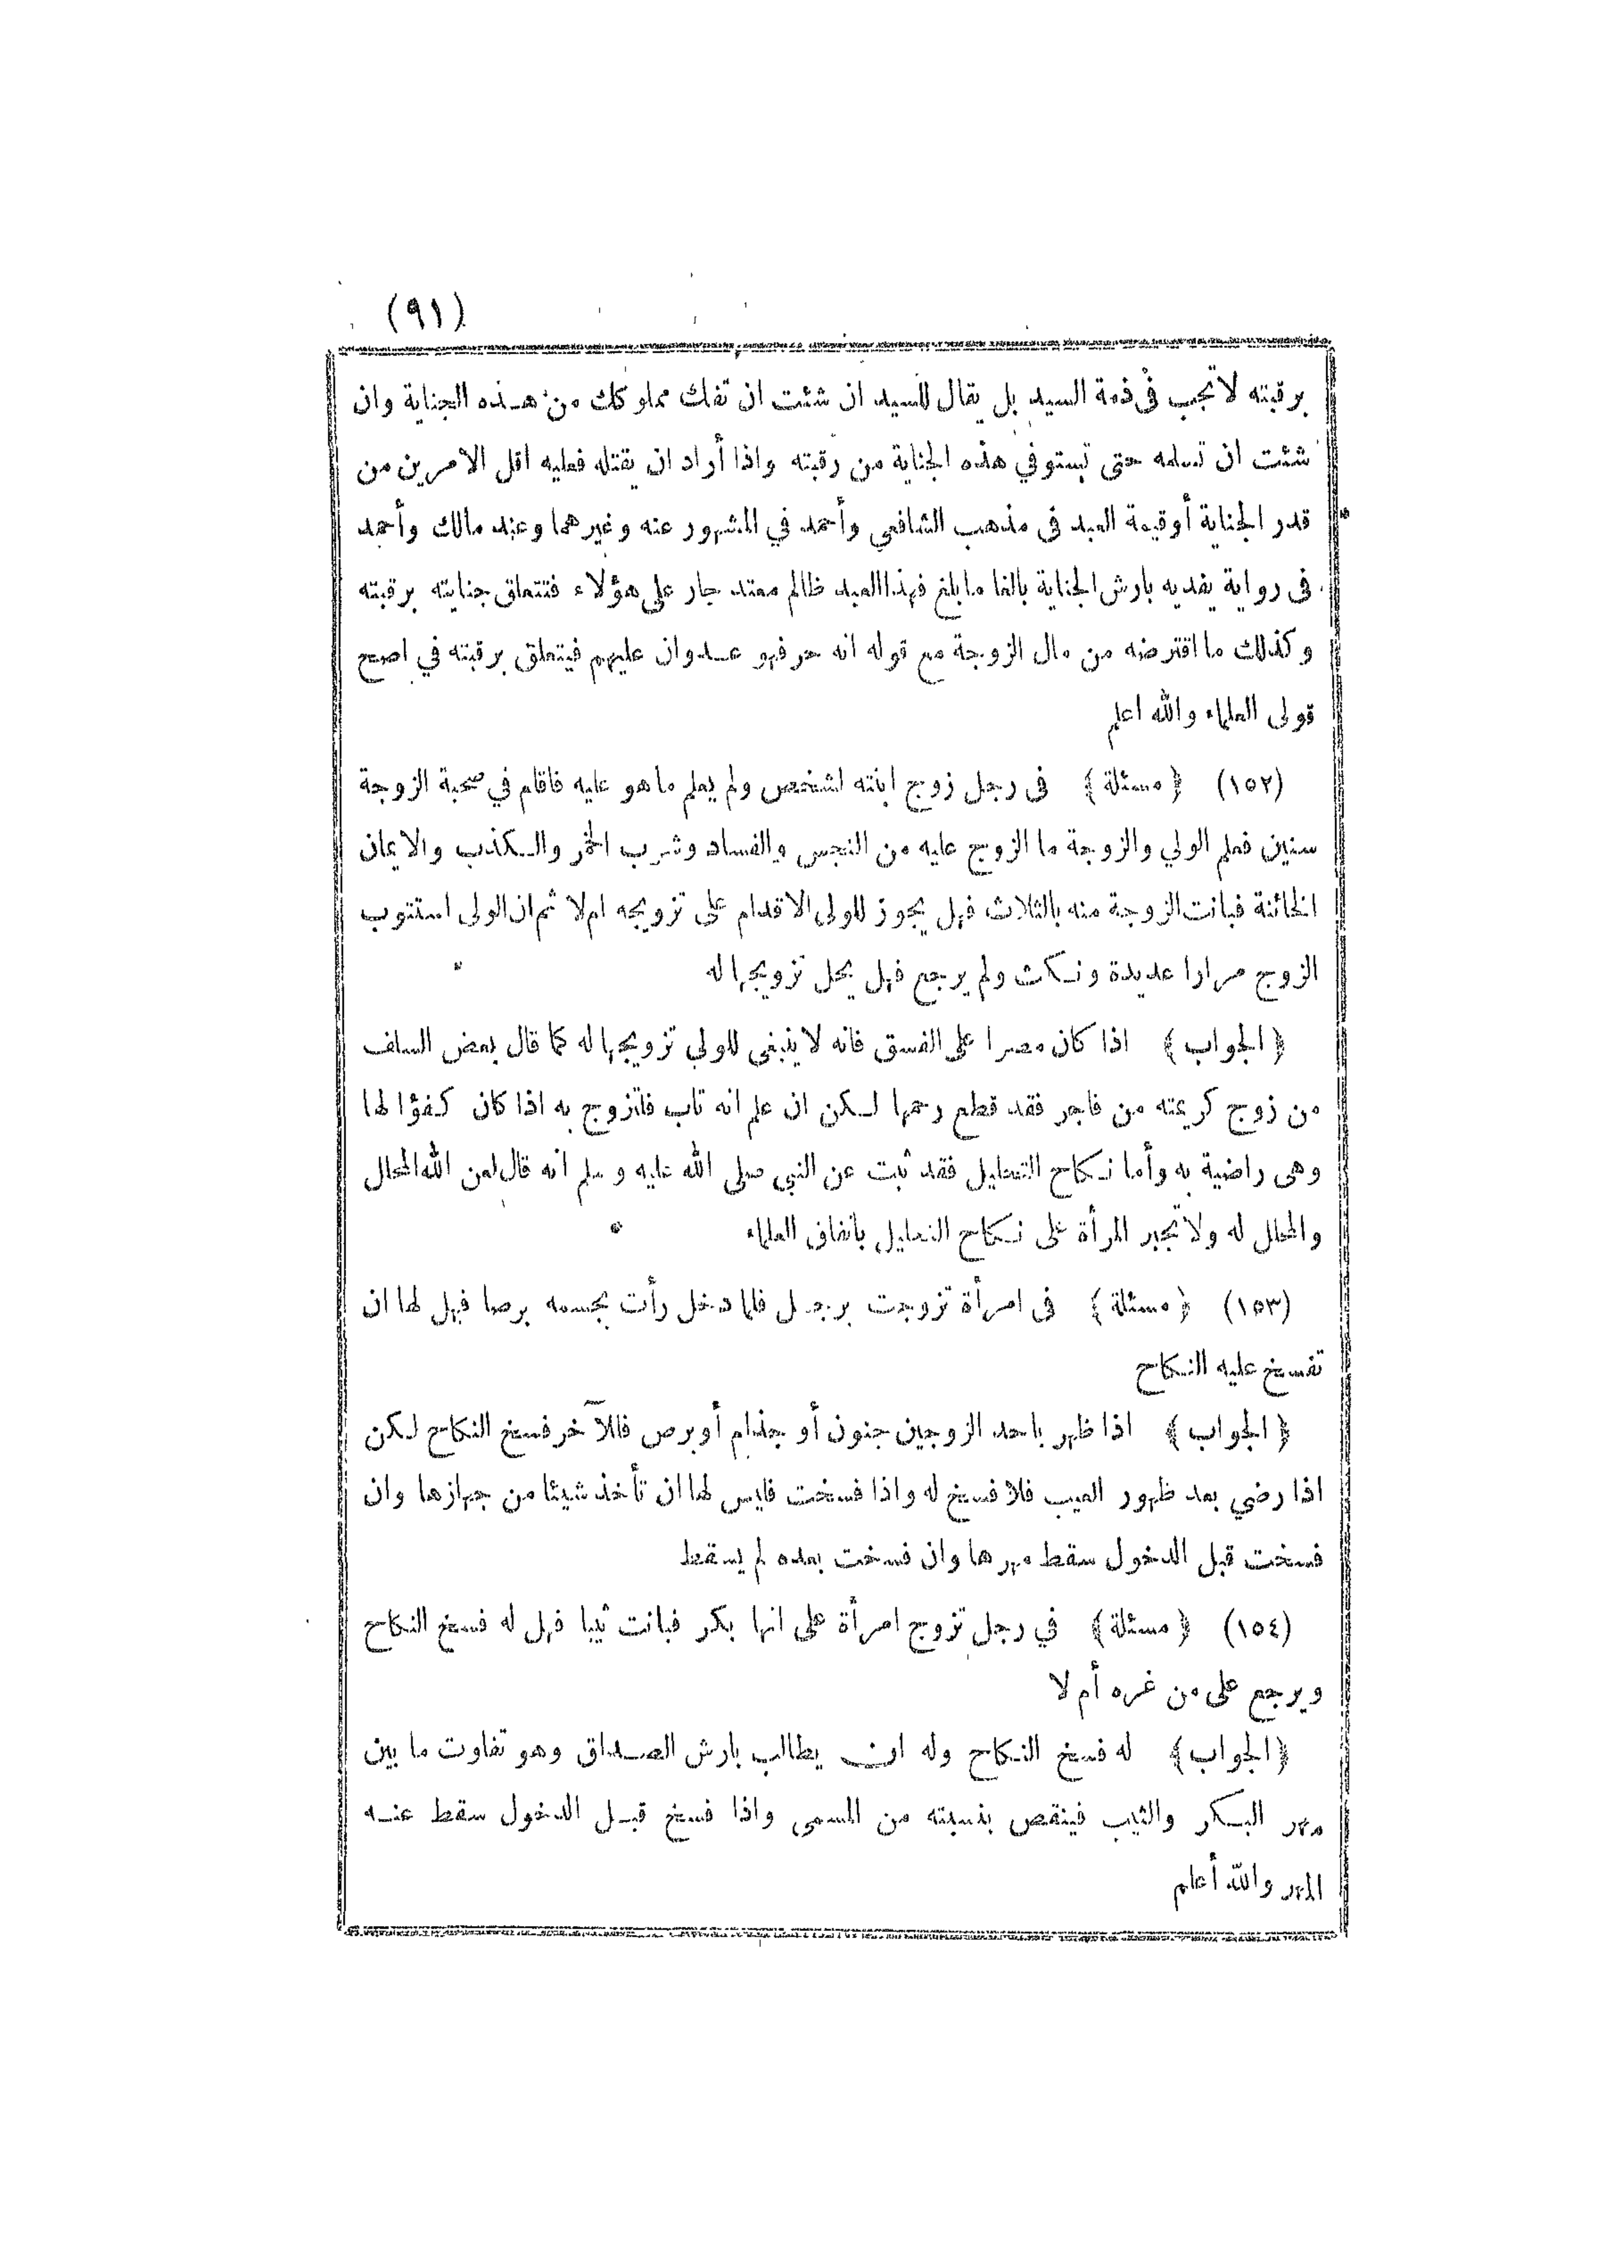 (٩١)
برقبته لا تجب فى ذمة السيد بل يقال للسيد ان شئت ان تفك مملوكك من هذه الجناية وان
شئت ان تسلمه حتى تستوفي هذه الجناية من رقبته واذا أراد ان يقتله فعليه اقل الامرين من
قدر الجناية أوقيمة العبد فى مذهب الشافعي وأحمد في المشهور عنه وغيرهما وعند مالك وأحمد
فى رواية يفديه بارش الجناية بالغا ما بلغ فهذا العبد ظالم معتد جار على هؤلاء فتتعلق جنايته برقبته
وكذلك ما اقترضه من مال الزوجة مع قوله انه حر فهو عدوان عليهم فيتعلق برقبته في اصح
قولى العلماء والله اعلم
(١٥٢) ﴿ مسئلة ﴾ فى رجل زوج ابنته لشخص ولم يعلم ما هو عليه فاقام في صحبة الزوجة
سنين فعلم الولي والزوجة ما الزوج عليه من النجس والفساد وشرب الخمر والكذب والايمان
الخائنة فبانت الزوجة منه بالثلاث فهل يجوز للولى الاقدام على تزويجه ام لا ثم ان الولى استتوب
الزوج مرارا عديدة ونكث ولم يرجع فهل يحل تزويجها له
﴿ الجواب ﴾ اذا كان مصرا على الفسق فانه لا ينبغى للولي تزويجها له كما قال بعض السلف
من زوج كريمته من فاجر فقد قطع رحمها لكن ان علم انه تاب فلتزوج به اذا كان كفؤا لها
وهى راضية به وأما نكاح التحليل فقد ثبت عن النبي صلى الله عليه وسلم أنه قال لعن الله المحلل
والمحلل له ولا تجبر المرأة على نكاح التحليل باتفاق العلماء
(١٥٣) ﴿ مسئلة ﴾ فى امرأة تزوجت برجل فلما دخل رأت بجسمه برصا فهل لها ان
تفسخ عليه النكاح
﴿ الجواب ﴾ اذا ظهر باحد الزوجين جنون أو جذام أو برص فللآخر فسخ النكاح لكن
اذا رضي بعد ظهور العيب فلا فسخ له واذا فسخت فليس لها ان تأخذ شيئا من جهازها وان
فسخت قبل الدخول سقط مهرها وان فسخت بعده لم يسقط
(١٥٤) ﴿ مسئلة ﴾ في رجل تزوج امرأة على انها بكر فبانت ثيبا فهل له فسخ النكاح
ويرجع على من غره أم لا
﴿ الجواب ﴾ له فسخ النكاح وله ان يطالب بارش الصداق وهو تفاوت ما بين
مهر البكر والثيب فينقص بنسبته من المسمى واذا فسخ قبل الدخول سقط عنه
المهر والله أعلم